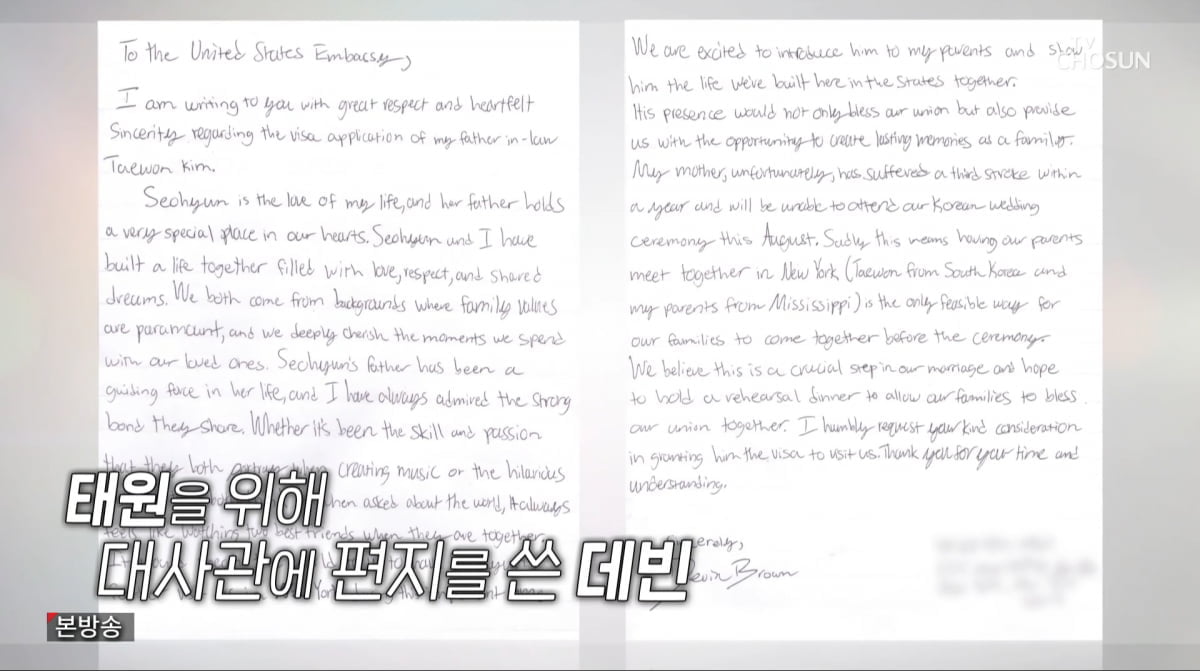 To the United States Embassy,
I am writing to you with great respect and heartfelt
Sincerity regarding the visa application of my father in-law
Taewon Kim.
Seohyun is the love of my life, and her father holds
a very special place in our hearts. Seohyun and I have
built a life together filled with love, respect, and shared
dreams. We both come from backgrounds where family values
are paramount, and we deeply cherish the moments we spend
with our loved ones. Seohyun's father has been a
guiding force in her life, and I have always admired the strong
bond they share. Whether it's been the skill and passion
that they both when creating music or the hilarious
when asked about the world, it always
feels like watching two best friends when they are together.
We are excited to introduce him to my parents and show
him the life we've built here in the States together.
His presence would not only bless our union but also provide
us with the opportunity to create lasting memories as a family.
My mother, unfortunately, has suffered a third stroke within
a year and will be unable to attend our Korean wedding
ceremony this August. Sadly this means having our parents
meet together in New York (Taewon from South Korea and
my parents from Mississippi) is the only feasible way for
our families to come together before the ceremony.
We believe this is a crucial step in our marriage and hope
to hold a rehearsal dinner to allow our families to bless
our union together. I humbly request your kind consideration
in granting him the visa to visit us. Thank you for your time and
understanding.
Sincerely,
Devin Brown
TV CHOSUN
태원을 위해
대사관에 편지를 쓴 데빈
본방송